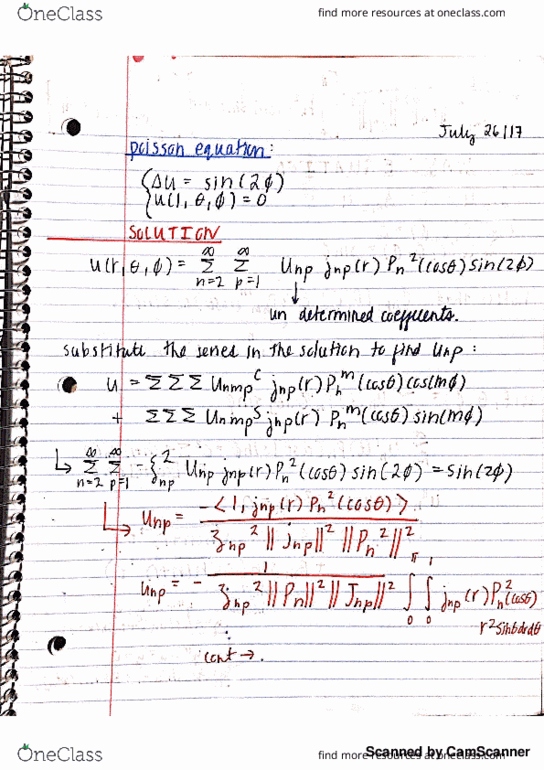 OneClass
find more resources at oneclass.com
July 26/17
poisson equation:
{Δu = sin(2ϕ)
{u(1, θ, ϕ) = 0
SOLUTION
u(r, θ, ϕ) = ∞Σn=2 ∞Σp=1 Unp jnp(r) Pn²(cosθ) sin(2ϕ)
↓
un determined coefficients.
substitute the series in the solution to find Unp :
u = ΣΣΣ Unmp^c jnp(r) Pn^m(cosθ) cos(mϕ)
+ ΣΣΣ Unmp^s jnp(r) Pn^m(cosθ) sin(mϕ)
↳ ∞Σn=2 ∞Σp=1 -ξnp² Unp jnp(r) Pn²(cosθ) sin(2ϕ) = sin(2ϕ)
↳ Unp = -<1, jnp(r) Pn²(cosθ)> / ξnp² ||jnp||² ||Pn²||²
Unp = - 1 / ξnp² ||Pn||² ||Jnp||² ∫0^π ∫0^1 jnp(r) Pn²(cosθ)
r² sinθ dr dθ
⋮
cont →.
OneClass
find more resources at oneclass.com
Scanned by CamScanner